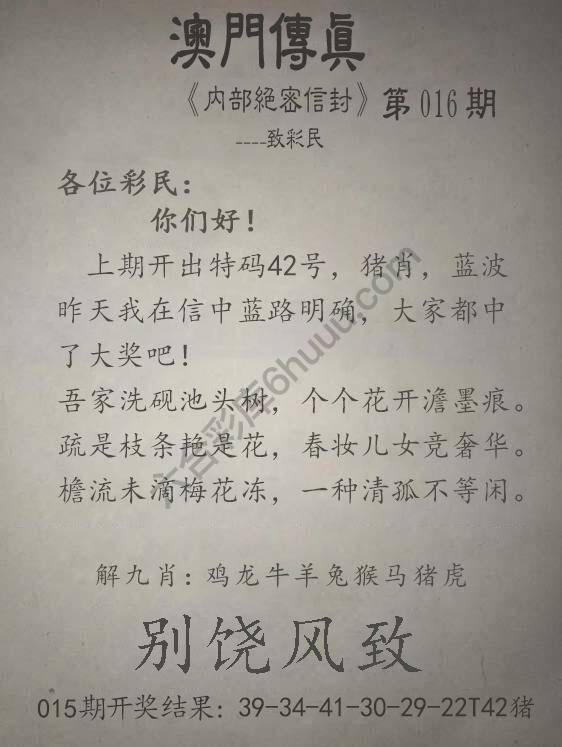 澳門傳真
《内部絕密信封》第016期
----致彩民
各位彩民：
你们好！
上期开出特码42号，猪肖，蓝波
昨天我在信中蓝路明确，大家都中
了大奖吧！
吾家洗砚池头树，个个花开澹墨痕。
疏是枝条艳是花，春妆儿女竞奢华。
檐流未滴梅花冻，一种清孤不等闲。
解九肖：鸡龙牛羊兔猴马猪虎
别饶风致
015期开奖结果：39-34-41-30-29-22T42猪
六合彩库6huuu.com